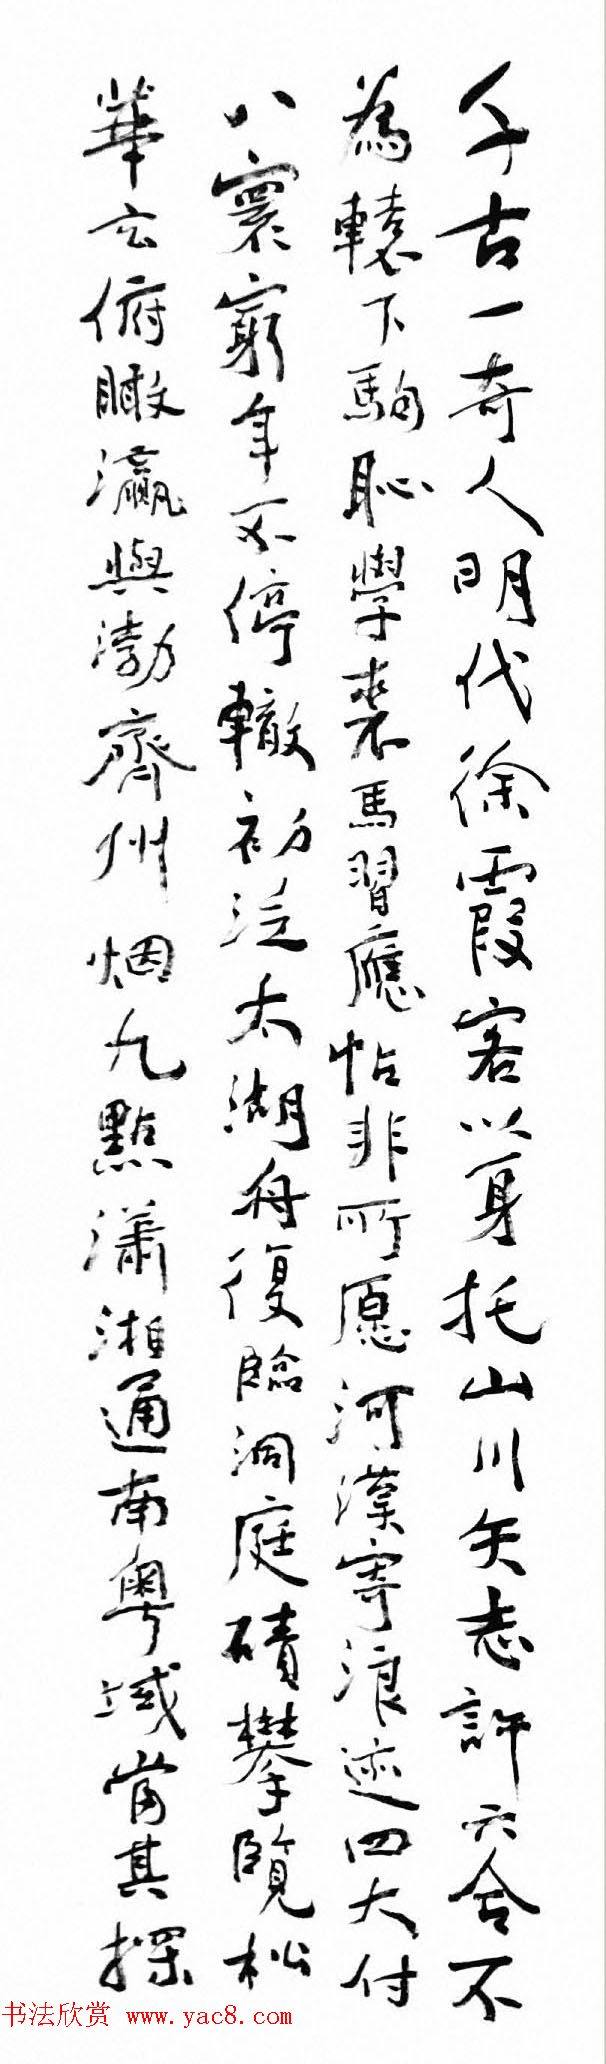 千古一奇人明代徐霞客以身托山川矢志許六合不
為轅下駒恥學裘馬習應帖非所愿河漢寄浪迹四大付
八寰窮年不停轍初泛太湖舟復臨洞庭磧攀覽松
華玄俯瞰瀛與渤齊州烟九點瀟湘通南粵域當其探
书法欣赏 www.yac8.com